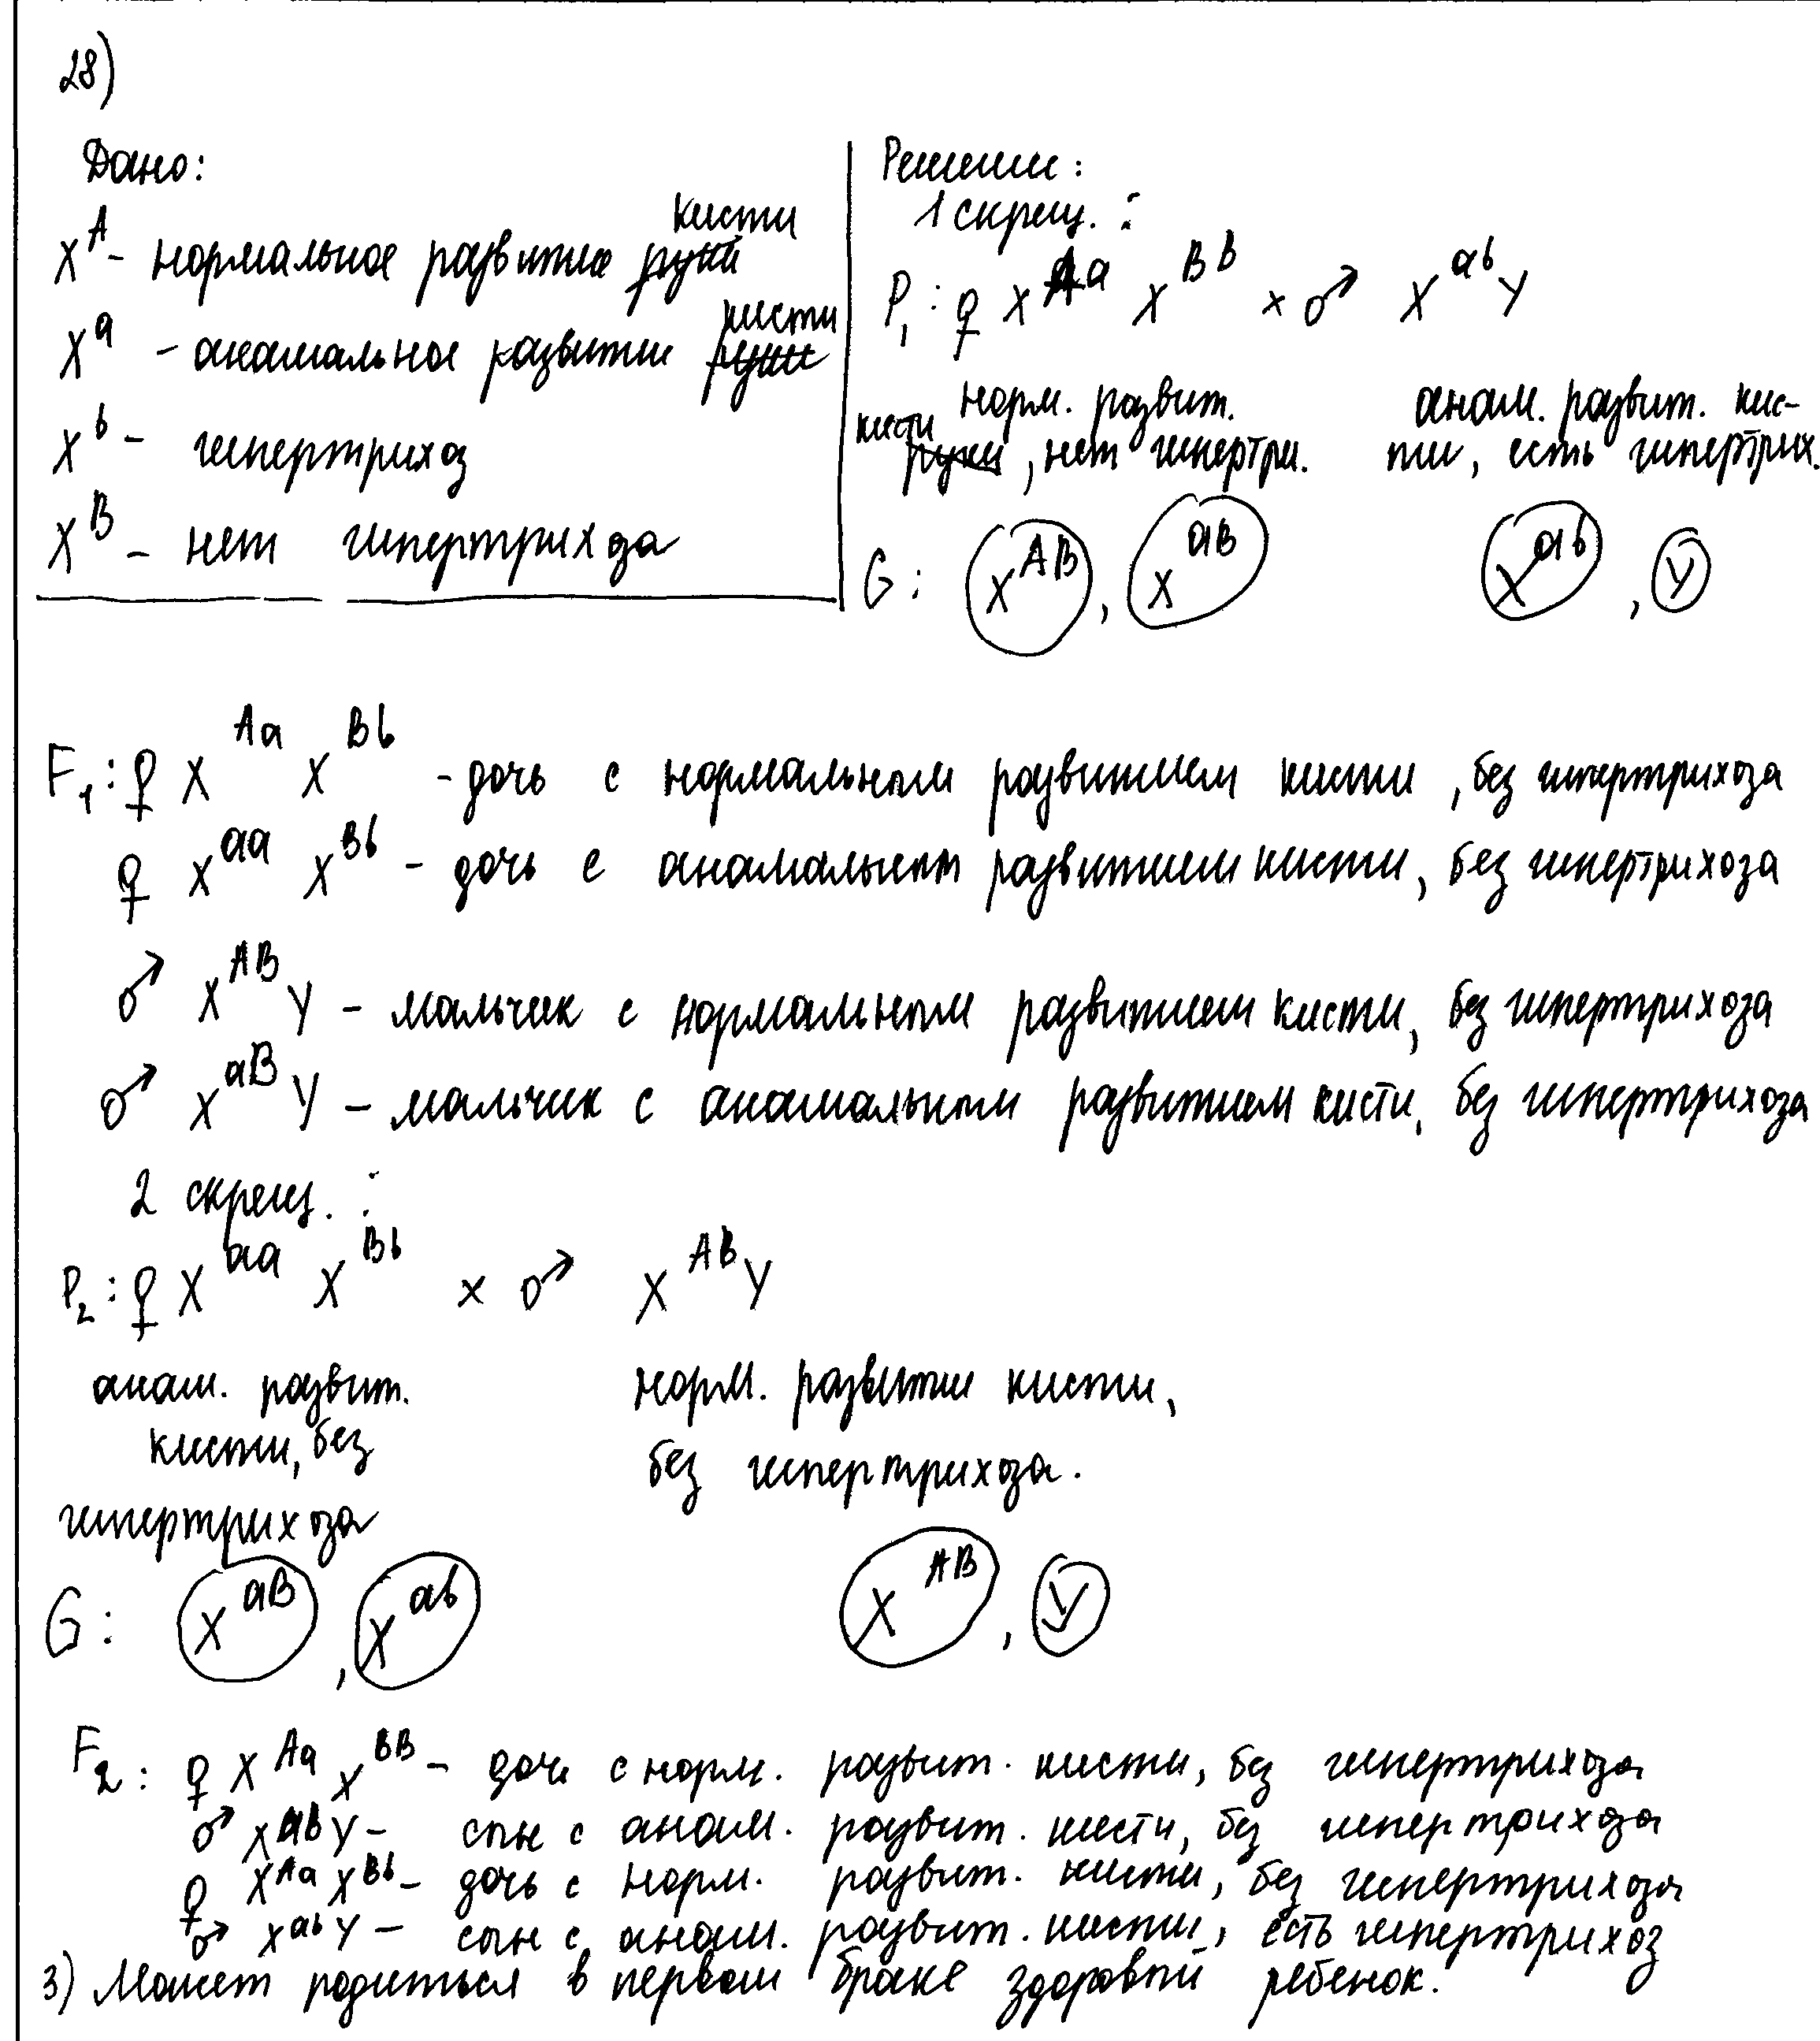 28)
Дано:
X^A - нормальное развитие руки кисти
X^a - анамальное развитие руки кисти
X^b - гипертрихоз
X^B - нет гипертрихоза
Решение:
1 скрещ. :
P₁: ♀ X^Aa X^BB × ♂ X^ab Y
норм. развит. анам. развит. кис-
кисти руки, нет гипертри. ти, есть гипертрих.
G: X^AB, X^aB X^ab, Y
F₁: ♀ X^Aa X^Bb - дочь с нормальным развитием кисти, без гипертрихоза
♀ X^aa X^Bb - дочь с анамальным развитием кисти, без гипертрихоза
♂ X^AB Y - мальчик с нормальным развитием кисти, без гипертрихоза
♂ X^aB Y - мальчик с анамальным развитием кисти, без гипертрихоза
2 скрещ. :
P₂: ♀ X^aa X^Bb × ♂ X^AB Y
анам. развит. норм. развитие кисти,
кисти, без без гипертрихоза.
гипертрихоза
G: X^aB, X^ab X^AB, Y
F₂: ♀ X^Aa X^BB - дочь с норм. развит. кисти, без гипертрихоза
♂ X^aB Y - сын с анам. развит. кисти, без гипертрихоза
♀ X^Aa X^Bb - дочь с норм. развит. кисти, без гипертрихоза
♂ X^ab Y - сын с анам. развит. кисти, есть гипертрихоз
3) Может родиться в первом браке здоровый ребенок.